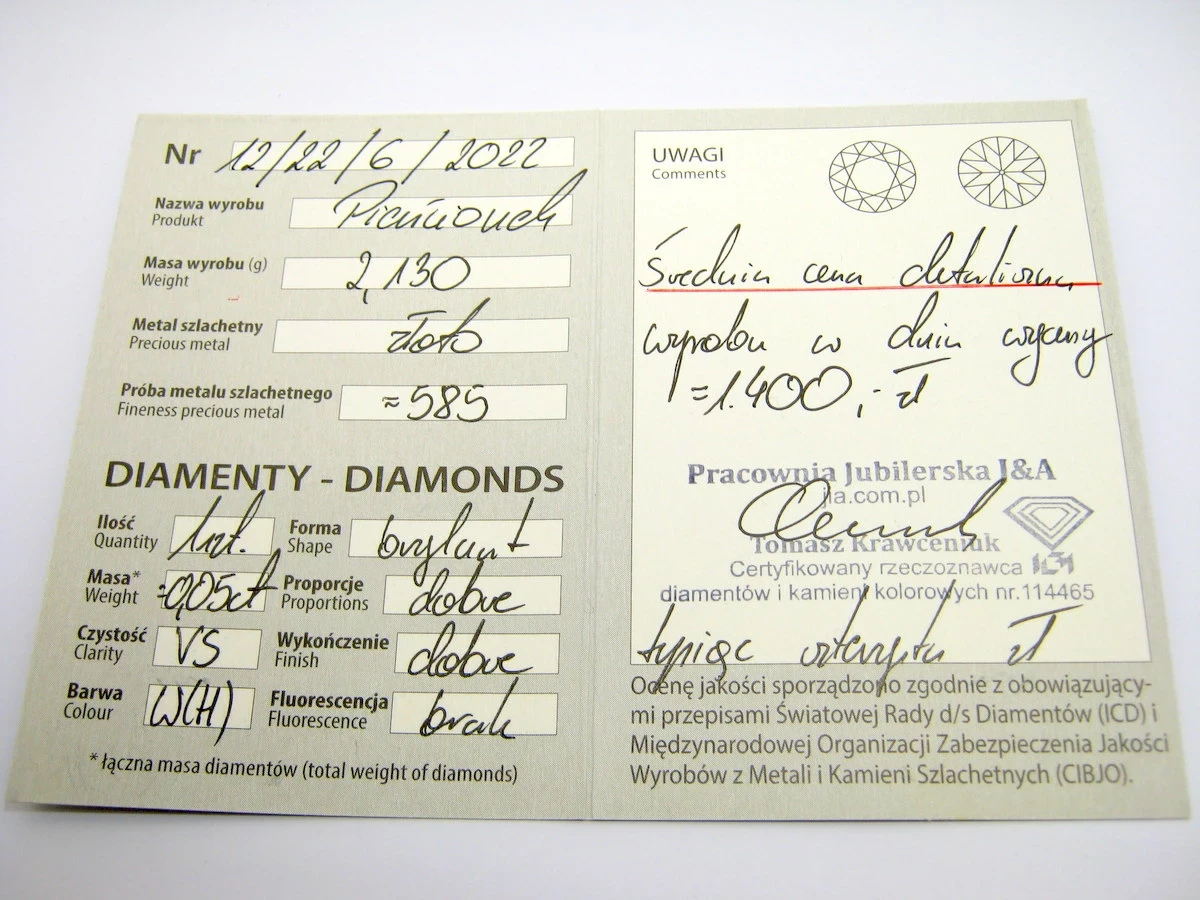 Nr 12/22/6/2022
Nazwa wyrobu Pierścionek
Produkt
Masa wyrobu (g) 2,130
Weight
Metal szlachetny złoto
Precious metal
Próba metalu szlachetnego ≈585
Fineness precious metal
DIAMENTY - DIAMONDS
Ilość 1szt. Forma brylant
Quantity Shape
Masa* =0,05ct Proporcje dobre
Weight Proportions
Czystość VS Wykończenie dobre
Clarity Finish
Barwa W(H) Fluorescencja brak
Colour Fluorescence
* łączna masa diamentów (total weight of diamonds)
UWAGI
Comments
Średnia cena detaliczna
wyrobu w dniu wyceny
=1.400,- zł
Pracownia Jubilerska J&A
jla.com.pl
Tomasz Krawceniuk
Certyfikowany rzeczoznawca
diamentów i kamieni kolorowych nr.114465
tysiąc czterysta zł
Ocenę jakości sporządzono zgodnie z obowiązujący-
mi przepisami Światowej Rady d/s Diamentów (ICD) i
Międzynarodowej Organizacji Zabezpieczenia Jakości
Wyrobów z Metali i Kamieni Szlachetnych (CIBJO).